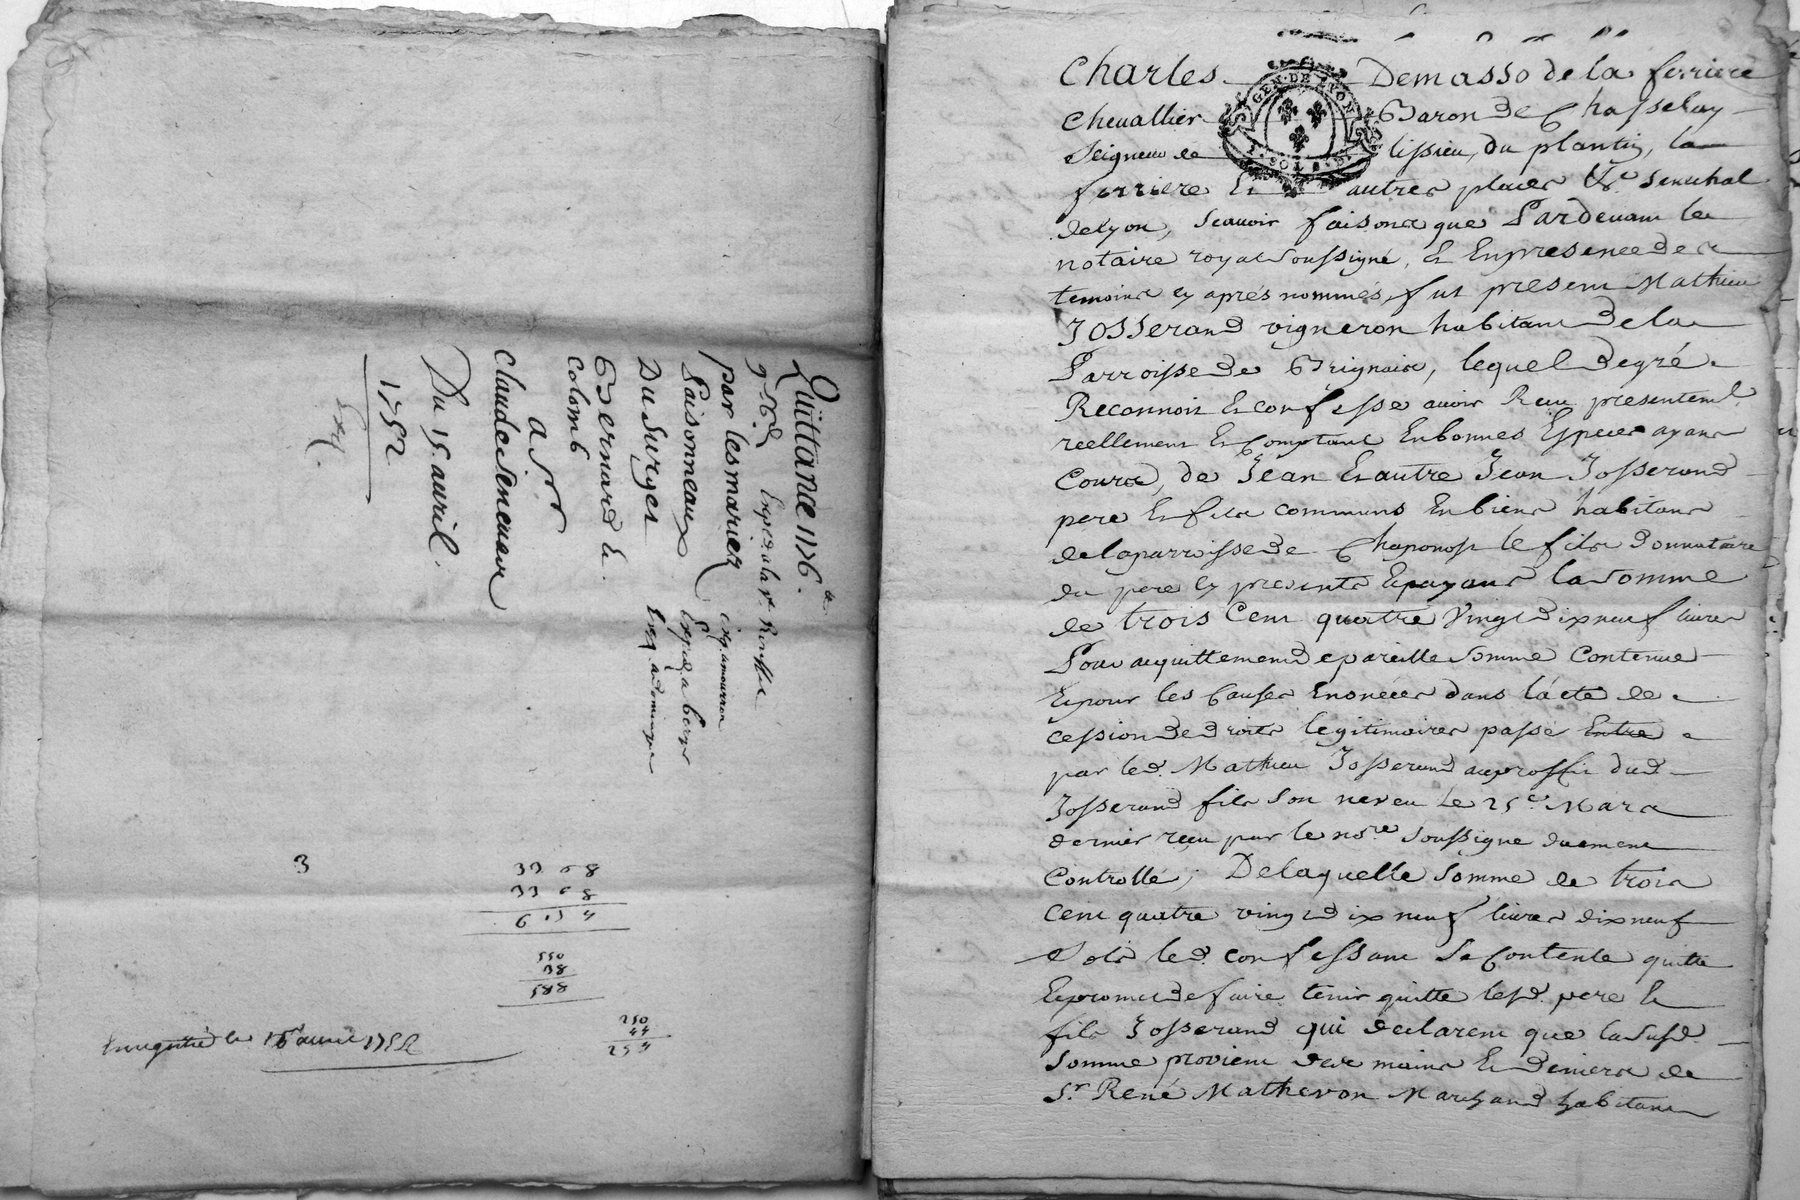 Quittance 1176.ᵗᵉ
par les mariez
Saisonneau
Du Surget
Bernard &
Colomb
a Sr
Claude Seneuar
Du 15 auril.
1752
Exp.
3
33 0 8
33 0 8
6 13 4
550
38
588
250
44
254
Enregistré le 16 auril 1752
GEN. DE LYON
SOLS
Charles Demasso de la ferriere
Cheuallier Baron de Chasselay
Seigneur de lissieu, du plantin, la
ferriere Et autres places &c. senechal
de lyon, scauoir faisons que Pardeuant le
notaire royal soussigné, Et En presence des
temoins cy aprés nommés, fut present Mathieu
Josserand vigneron habitant de la
Parroisse de Brignais, lequel de gré
Reconnoit Et confesse auoir Reçu presentemt.
reellement Et Comptant En bonnes Especes ayant
Cours, de Jean Et autre Jean Josserand
pere Et fils communs En biens habitans
de la parroisse de Chaponost le fils donnataire
du pere cy presents Et payans la somme
de trois Cent quattre Vingt dix neuf liures
Pour acquittement de pareille somme Contenue
Et pour les Causes Enoncées dans l'acte de
cession de droits legitimaires passé Entre
par led. Mathieu Josserand au proffit dud.
Josserand fils son neveu le 25e. Mars
dernier reçu par le nore. soussigné duement
Controllé; De laquelle somme de trois
Cent quatre vingt dix neuf liures dix neuf
sols led. confessant se Contente quitte
Et promet de faire tenir quitte lesd. pere Et
fils Josserand qui declarent que la susd.
somme provient des mains Et deniers de
Sr. René Mathevon Marchand habitant